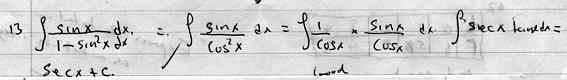 13 ∫ sinx/1-sin²x dx dx. = ∫ sinx/cos²x dx = ∫ 1/cosx * sinx/cosx dx. ∫ secx tanxdx =
secx + c. Good